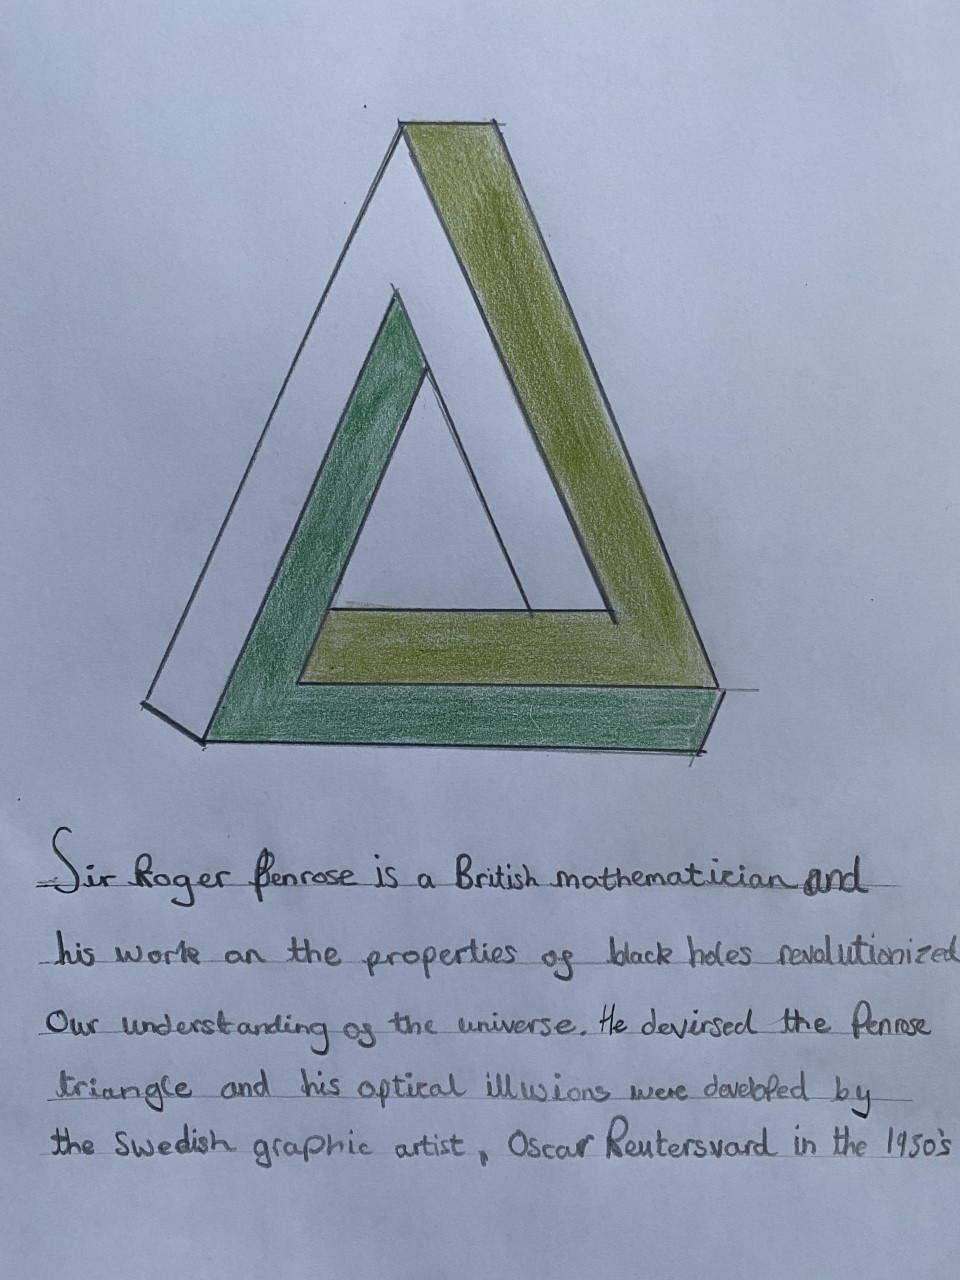 Sir Roger Penrose is a British mathematician and
his work on the properties of black holes revolutionized
Our understanding of the universe. He devirsed the Penrose
triangle and his optical illusions were developed by
the Swedish graphic artist, Oscar Reutersvard in the 1950's